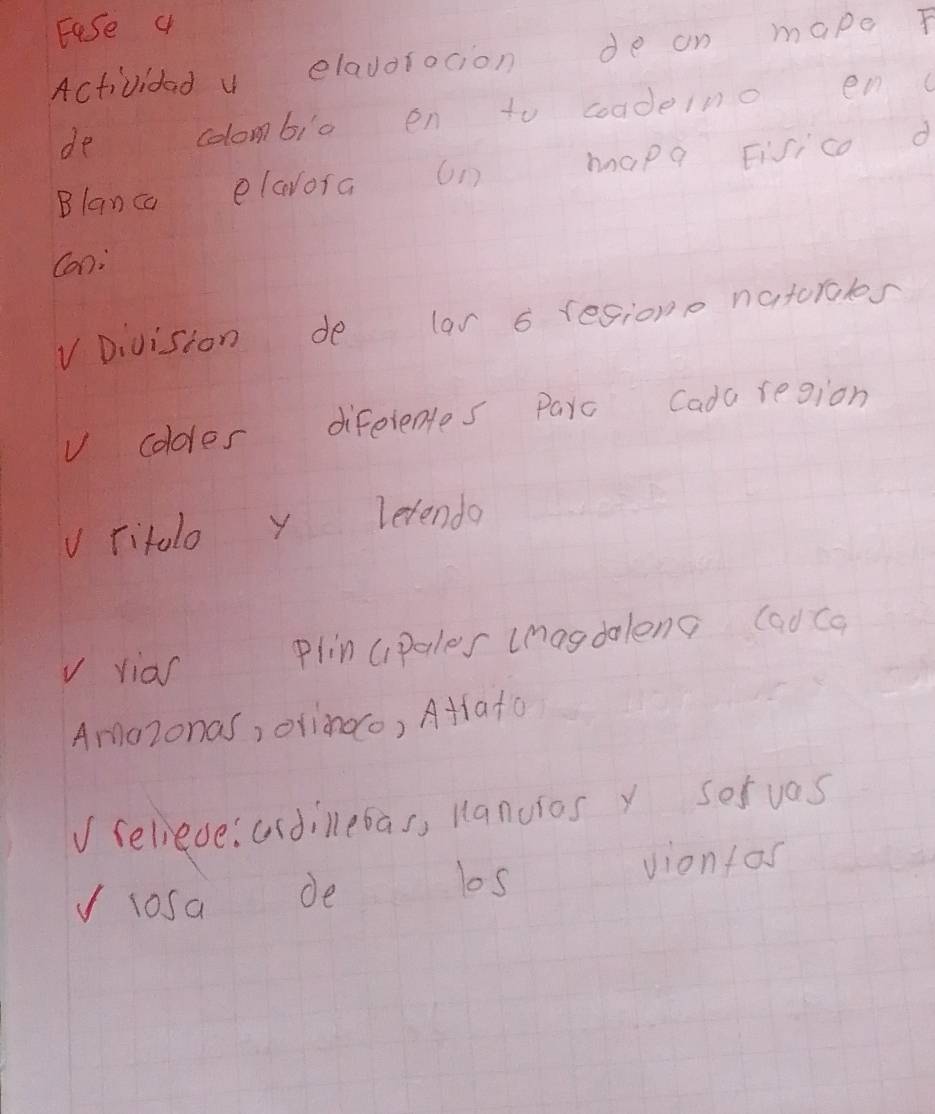 Fase 4
Actividad 4 elavorocion de un mapa F
de colombia en tu coaderno en
Blanca elavora un mapa Fisico d
con:
v Division de las 6 regione naturales
v colores diferentes para cada region
v titulo y lellenda
v rios prin cipales (magdalena cauca
Amazonas, orinoco, Atrato
v relieve: cordilleras, llanuras y selvas
v rosa de los vientos